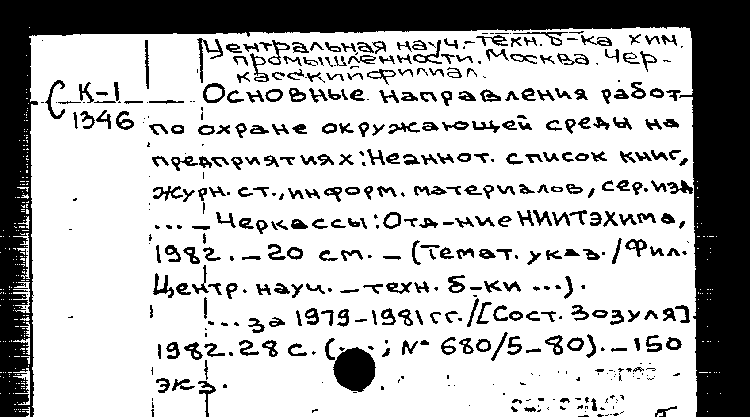 Центральная науч.-техн. б-ка хим.
промышленности. Москва. Чер-
касский филиал.
С К-1
1346
Основные направления работ
по охране окружающей среды на
предприятиях: Неаннот. список книг,
журн. ст., информ. материалов, сер. изд
... — Черкассы: Отд-ние НИИТЭХима,
1982. — 20 см. — (Темат. указ. / Фил.
Центр. науч. — техн. б-ки ...).
... за 1979-1981 гг. / [Сост. Зозуля].
1982. 28 с. (...; № 680/5-80). — 150
экз.